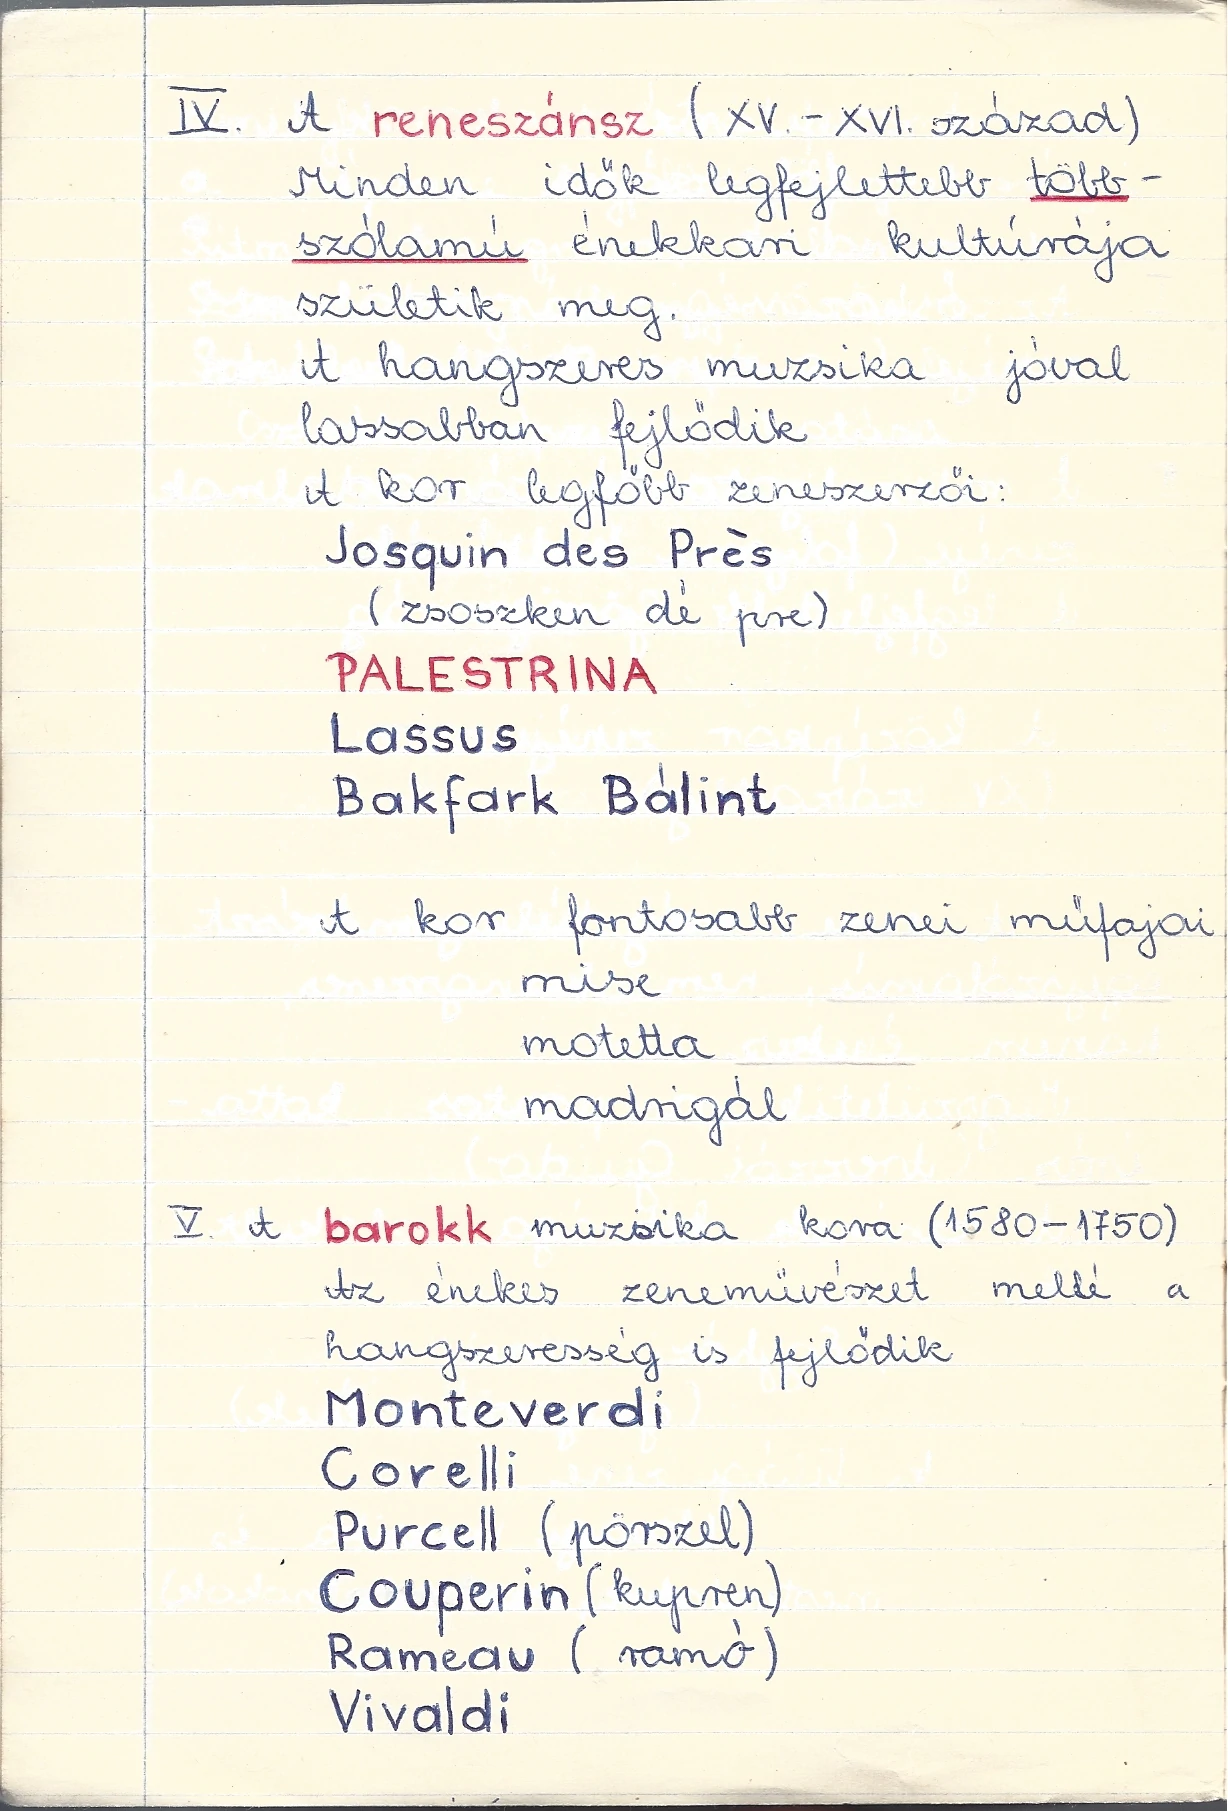 IV. A reneszánsz (XV. - XVI. század)
Minden idők legfejlettebb több-
szólamú énekkari kultúrája
születik meg.
A hangszeres muzsika jóval
lassabban fejlődik
A kor legfőbb zeneszerzői:
Josquin des Près
(zsoszken dé pre)
PALESTRINA
Lassus
Bakfark Bálint
A kor fontosabb zenei műfajai
mise
motetta
madrigál
V. A barokk muzsika kora (1580-1750)
Az énekes zeneművészet mellé a
hangszeresség is fejlődik
Monteverdi
Corelli
Purcell (pörszel)
Couperin (kupren)
Rameau (ramó)
Vivaldi